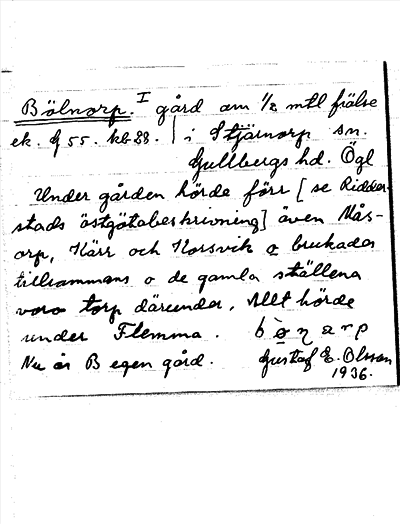 Bölnorp. I gård om 1/2 mtl frälse
ek. G 55. kb 88. | i Stjärnorp sn.
Gullbergs hd. Ögl
Under gården hörde förr [se Ridder-
stads östgötabeskrivning] även Mås-
orp, Kärr och Korsvik o brukades
tillsammans o de gamla ställena
voro torp därunder. Allt hörde
under Flemma.
Nu är B egen gård. Gustaf E. Olsson
1936.